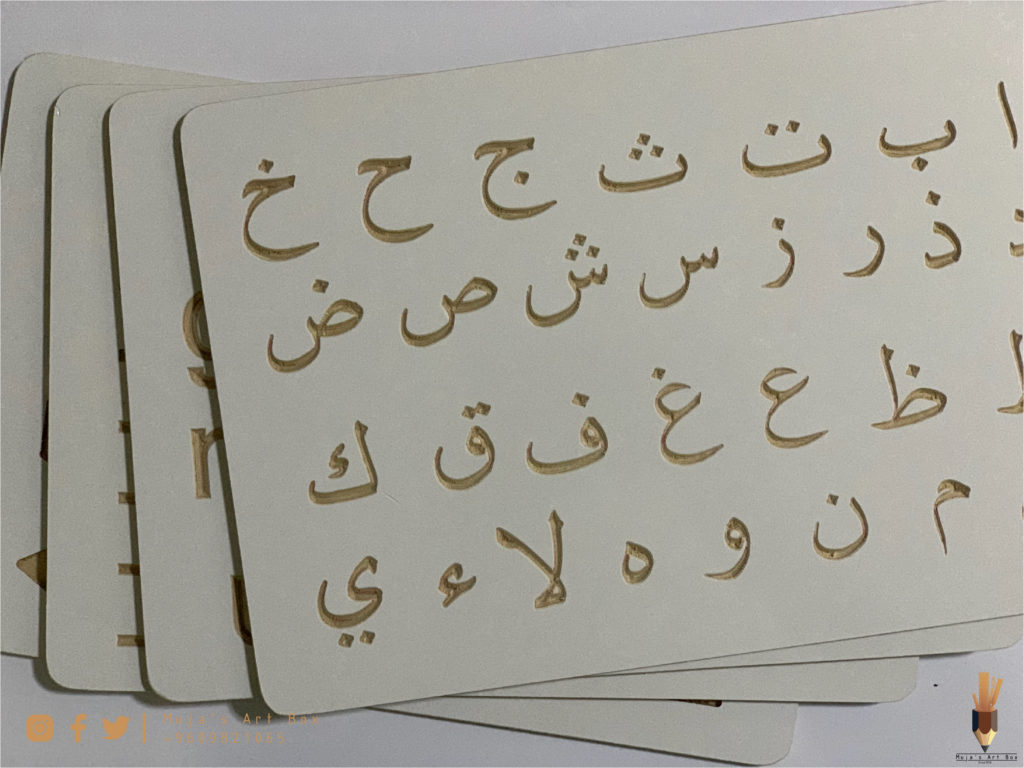 ا ب ت ث ج ح خ
ذ ر ز س ش ص ض
ظ ع غ ف ق ك
م ن و ه لا ء ي
Muja's Art Box
Muja's Art Box